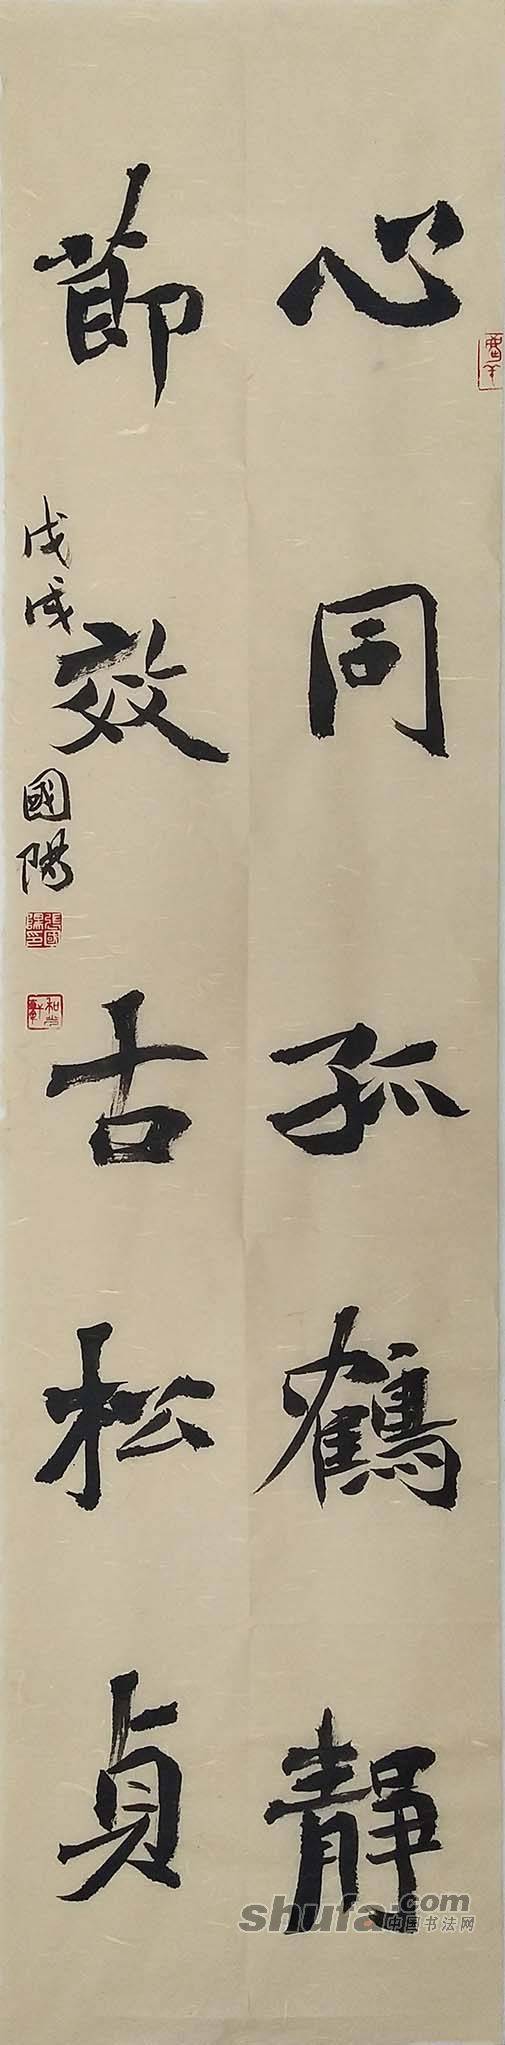 心同孤鶴靜
節效古松貞
戊戌
國陽
張國陽印
shufa.com
中国书法网